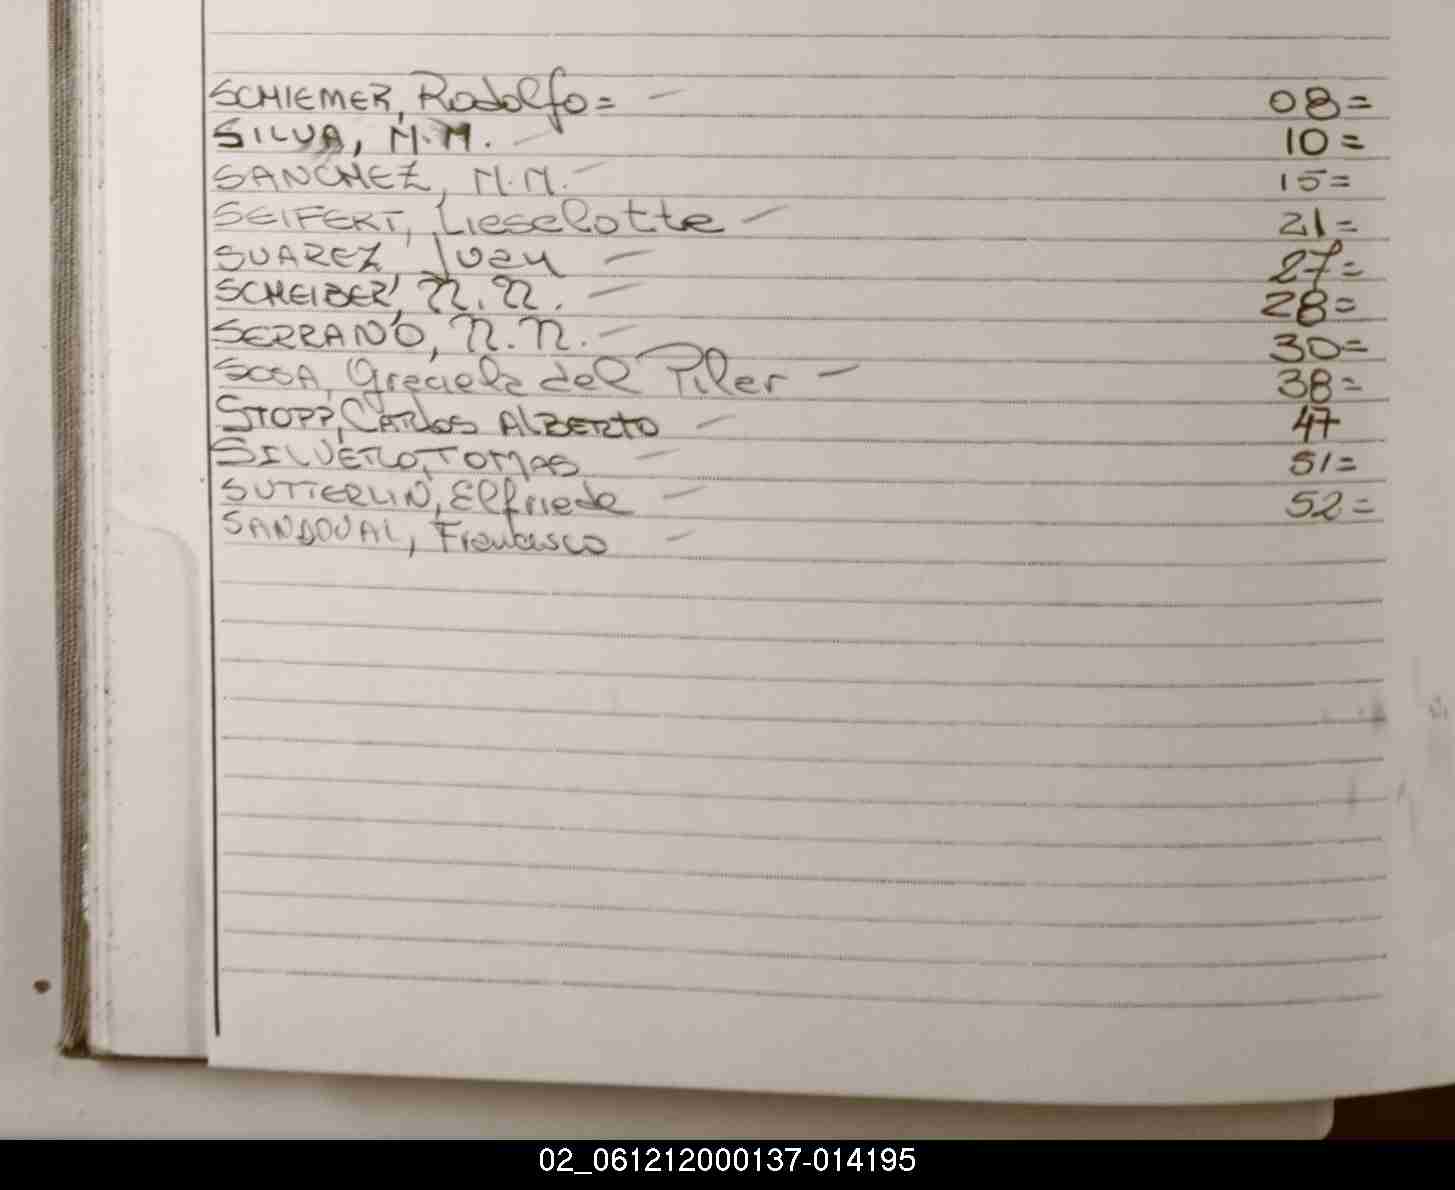 SCHIEMER, Rodolfo = — 08 =
SILVA, M.M. — 10 =
SANCHEZ, M.M. — 15 =
SEIFERT, Lieselotte — 21 =
SUAREZ, Juan — 27 =
SCHEIBER, N.N. — 28 =
SERRANO, N.N. — 30 =
SOSA, Graciela del Pilar — 38 =
STOPP, CARLOS ALBERTO — 47
SILVERO, TOMAS — 51 =
SUTTERLIN, Elfriede — 52 =
SANDOVAL, Francisco —
02_061212000137-014195